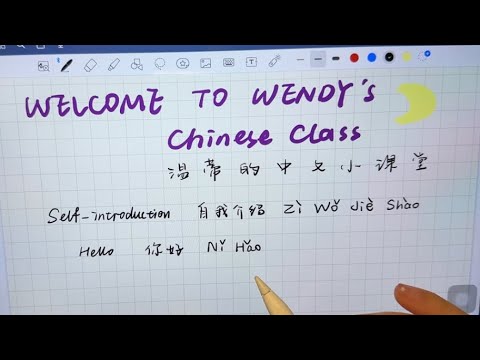 WELCOME TO WENDY's
Chinese Class
温蒂的中文小课堂
Self-introduction 自我介绍 Zì Wǒ Jiè Shào
Hello 你好 Nǐ Hǎo